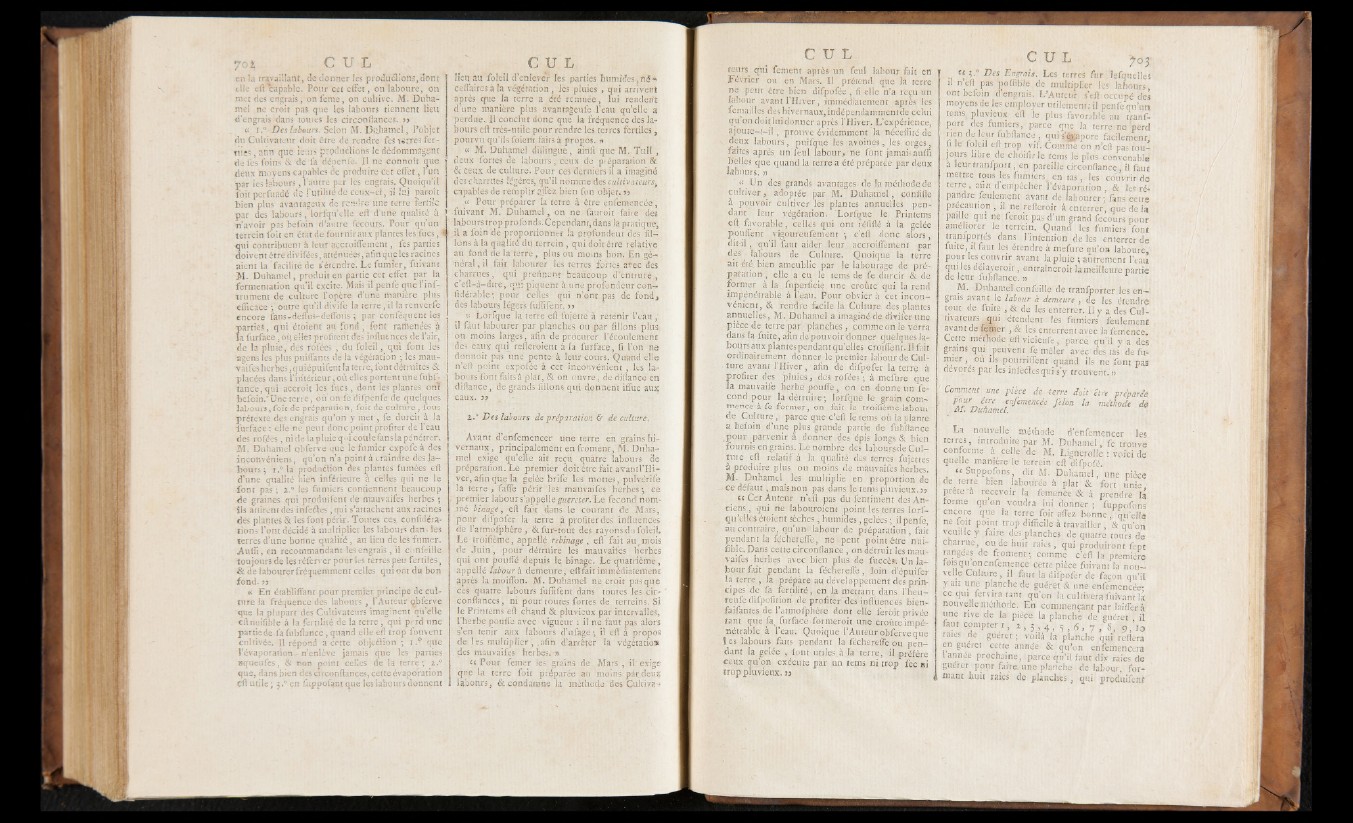 702 CUL
en la travaillant, de donner les productions, dont
elle est capable. Pour cet effet, on laboure, on
met des engrais, on seme, on cultive. M. Duha-
mel ne croit pas que les labours tiennent lieu
d'engrais dans toutes les circonstances. »
« 1.° Des labours. Selon M. Duhamel, l'objet
du Cultivateur doit être de rendre ses terres fer-
tiles, afin que leurs productions le dédommagent
de ses soins & de sa dépense. Il ne connoît que
deux moyens capables de produire cet effet, l'un
par les labours, l'autre par les engrais. Quoiqu'il
soit persuadé de l'utilité de ceux-ci, il lui paroît
bien plus avantageux de rendre une terre fertile
par des labours, lorsqu'elle est d'une qualité à
n'avoir pas besoin d'autre secours. Pour qu'un
terrein soit en état de fournir aux plantes les sucs,
qui contribuent à leur accroissement, ses parties
doivent être divisées, atténuées, afin que les racines
aient la facilité de s'étendre. Le fumier, suivant
M. Duhamel, produit en partie cet effet par la
fermentation qu'il excite. Mais il pense que l'ins-
trument de culture l'opère d'une manière plus
efficace ; outre qu'il divise la terre, il la renverse
encore sans-dessus-dessous ; par conséquent les
parties, qui étoient au fond, sont ramenées à
la surface, où elles profitent des influences de l'air,
de la pluie, des rosées, du soleil, qui sont les
agens les plus puissants de la végétation ; les mau-
vaises herbes, qui épuisent la terre, sont détruites &
placées dans l'intérieur, où elles portent une subs-
tance, qui accroît les sucs, dont les plantes ont
besoin. Une terre, où on se dispense de quelques
labours, soit de préparation, soit de culture, sous
prétexte des engrais qu'on y met, se durcit à la
surface : elle ne peut donc point profiter de l'eau
des rosées, ni de la pluie qui coule sans la pénétrer.
M. Duhamel observe que le fumier expose à des
inconvéniens, qu'on n'a point à craindre des la-
bours ; 1.° la production des plantes fumées est
d'une qualité bien inférieure à celles qui ne le
sont pas ; 2.° les fumiers contiennent beaucoup
de graines qui produisent de mauvaises herbes ;
ils attirent des insectes, qui s'attachent aux racines
des plantes & les font périr. Toutes ces considéra-
tions l'ont décidé à multiplier les labours dans les
terres d'une bonne qualité, au lieu de les fumer.
Aussi, en recommandant les engrais, il conseille
toujours de les réserver pour les terres peu fertiles,
& de labourer fréquemment celles qui ont du bon
fond. »
« En établissant pour premier principe de cul-
ture la fréquence des labours, l'Auteur observe
que la plupart des Cultivateurs imaginent qu'elle
est nuisible à la fertilité de la terre, qui perd une
partie de sa substance, quand elle est trop souvent
cultivée. Il répond à cette objection ; 1.° que
l'évaporation n'enlève jamais que les parties
aqueuses, & non point celles de la terre ; 2.°
que, dans bien des circonstances, cette évaporation
est utile ; 3.° en supposant que les labours donnent
CUL
lieu au soleil d'enlever les parties humides, né-
cessaires à la végétation, les pluies, qui arrivent
après que la terre a été remuée, lui rendent
d'une manière plus avantageuse l'eau qu'elle a
perdue. Il conclut donc que la fréquence des la-
bours est très-utile pour rendre les terres fertiles,
pourvu qu'ils soient faits à propos. »
« M. Duhamel distingue, ainsi que M. Tull,
deux sortes de labours, ceux de préparation &
& ceux de culture. Pour ces derniers il a imaginé
des charrues légères, qu'il nomme des cultivateurs,
capables de remplir assez bien son objet. »
« Pour préparer la terre à être ensemencée,
suivant M. Duhamel, on ne sauroit faire des
labours trop profonds. Cependant, dans la pratique,
il a soin de proportionner la profondeur des sil-
lons à la qualité du terrein, qui doit être relative
au fond de la terre, plus ou moins bon. En gé-
néral, il fait labourer les terres fortes avec des
charrues, qui prennent beaucoup d'entrure,
c'est-à-dire, qui piquent à une profondeur con-
sidérable ; pour celles qui n'ont pas de fond,
des labours légers suffisent. »
« Lorsque la terre est sujette à retenir l'eau,
il faut labourer par planches ou par sillons plus
ou moins larges, afin de procurer l'écoulement
des eaux qui resteroient à la surface, si l'on ne
donnoit pas une pente à leur cours. Quand elle
n'est point exposée à cet inconvénient, les la-
bours sont faits à plat, & on ouvre, de distance en
distance, de grands sillons qui donnent issue aux
eaux. »
2.° Des labours de préparation & de culture.
Avant d'ensemencer une terre en grains hi-
vernaux, principalement en froment, M. Duha-
mel exige qu'elle ait reçu quatre labours de
préparation. Le premier doit être fait avant l'Hi-
ver, afin que la gelée brise les mottes, pulvérise
la terre, fasse périr les mauvaises herbes ; ce
premier labour s'appelle guereter. Le second nom-
mé binage, est fait dans le courant de Mars,
pour disposer la terre à profiter des influences
de l'atmosphère, & sur-tout des rayons du soleil.
Le troisième, appellé rebinage, est fait au mois
de Juin, pour détruire les mauvaises herbes
qui ont poussé depuis le binage. Le quatrième,
appellé labour à demeure, est fait immédiatement
après la moisson. M. Duhamel ne croit pas que
ces quatre labours suffisent dans toutes les cir-
constances, ni pour toutes sortes de terreins. Si
le Printems est chaud & pluvieux par intervalles,
l'herbe pousse avec vigueur : il ne faut pas alors
s'en tenir aux labours d'usage ; il est à propos
de les multiplier, afin d'arrêter la végétation
des mauvaises herbes. »
« Pour semer les grains de Mars, il exige
que la terre soit préparée au moins par deux
labours, & condamne la méthode des Cultiva-
CUL
teurs qui sement après un seul labour fait en
Février ou en Mars. Il prétend que la terre
ne peut être bien disposée, si elle n'a reçu un
labour avant l'Hiver, immédiatement après les
semailles des hivernaux, indépendamment de celui
qu'on doit lui donner après l'Hiver. L'expérience,
ajoute-t-il, prouve évidemment la nécessité de
deux labours, puisque les avoines, les orges,
faites après un seul labour, ne sont jamais aussi
belles que quand la terre a été préparée par deux
labours. »
« Un des grands avantages de la méthode de
cultiver, adoptée par M. Duhamel, consiste
à pouvoir cultiver les plantes annuelles pen-
dant leur végétation. Lorsque le Printems
est favorable, celles qui ont résisté à la gelée
poussent vigoureusement ; c'est donc alors,
dit-il, qu'il faut aider leur accroissement par
des labours de Culture. Quoique la terre
ait été bien ameublie par le labourage de pré-
paration, elle a eu le tems de se durcir & de
former à la superficie une croûte qui la rend
impénétrable à l'eau. Pour obvier à cet incon-
vénient, & rendre facile la Culture des plantes
annuelles, M. Duhamel a imaginé de diviser une
pièce de terre par planches, comme on le verra
dans la suite, afin de pouvoir donner quelques la-
bours aux plantes pendant qu'elles croissent. Il fait
ordinairement donner le premier labour de Cul-
ture avant l'Hiver, afin de disposer la terre à
profiter des pluies, des rosées ; à mesure que
la mauvaise herbe pousse, on en donne un se-
cond pour la détruire ; lorsque le grain com-
mence à se former, on fait le troisième labour
de Culture, parce que c'est le tems où la plante
a besoin d'une plus grande partie de substance
pour parvenir à donner des épis longs & bien
fournis en grains. Le nombre des labours de Cul-
ture est relatif à la qualité des terres sujettes
à produire plus ou moins de mauvaises herbes.
M. Duhamel les multiplie en proportion de
ce défaut, mais non pas dans le tems pluvieux. »
« Cet Auteur n'est pas du sentiment des An-
ciens, qui ne labouroient point les terres lors-
qu'elles étoient sèches ; humides, gelées ; il pense,
au contraire, qu'un labour de préparation, fait
pendant la sécheresse, ne peut point être nui-
sible. Dans cette circonstance, on détruit les mau-
vaises herbes avec bien plus de succès. Un la-
bour fait pendant la sécheresse, loin d'épuiser
la terre, la prépare au développement des prin-
cipes de sa fertilité, en la mettant dans l'heu-
reuse disposition de profiter des influences bien-
faisantes de l'atmosphère dont elle seroit privée
tant que sa surface formeroit une croûte impé-
nétrable à l'eau. Quoique l'Auteur observe que
les labours faits pendant la sécheresse ou pen-
dant la gelée, sont utiles à la terre, il préfère
ceux qu'on exécute par un tems ni trop sec ni
trop pluvieux. »
CUL 703
« 3.° Des Engrais. Les terres sur lesquelles
il n'est pas possible de multiplier les labours,
ont besoin d'engrais. L'Auteur s'est occupé des
moyens de les employer utilement : il pense qu'un
tems pluvieux est le plus favorable au trans-
port des fumiers, parce que la terre ne perd
rien de leur substance, qui s'évapore facilement,
si le soleil est trop vif. Comme on n'est pas tou-
jours libre de choisir le tems le plus convenable
à leur transport, en pareille circonstance, il faut
mettre tous les fumiers en tas, les couvrir de
terre, afin d'empêcher l'évaporation, & les ré-
pandre seulement avant de labourer ; sans cette
précaution, il ne resteroit à enterrer, que de la
paille qui ne seroit pas d'un grand secours pour
améliorer le terrein. Quand les fumiers sont
transportés dans l'intention de les enterrer de
suite, il faut les étendre à mesure qu'on laboure,
pour les couvrir avant la pluie ; autrement l'eau
qui les délaveroit, entraîneroit la meilleure partie
de leur substance. »
M. Duhamel conseille de transporter les en-
grais avant le labour à demeure, de les étendre
tout de suite, & de les enterrer. Il y a des Cul-
tivateurs qui étendent les fumiers seulement
avant de semer, & les enterrent avec la semence.
Cette méthode est vicieuse, parce qu'il y a des
grains qui peuvent se mêler avec des tas de fu-
mier, où ils pourrissent quand ils ne sont pas
dévorés par les insectes qui s'y trouvent. »
Comment une pièce de terre doit être préparée
pour être ensemencée selon la méthode de
M. Duhamel.
La nouvelle méthode d'ensemencer les
terres, introduite par M. Duhamel, se trouve
conforme à celle de M. Lignerolle : voici de
quelle manière le terrein est disposé.
« Supposons, dit M. Duhamel, une pièce
de terre bien labourée à plat & fort unie,
prête à recevoir la semence & à prendre la
forme qu'on voudra lui donner ; supposons
encore que la terre soit assez bonne, qu'elle
ne soit point trop difficile à travailler, & qu'on
veuille y faire des planches de quatre tours de
charrue, ou de huit raies, qui produiront sept
rangées de froment ; comme c'est la première
fois qu'on ensemence cette pièce suivant la nou-
velle Culture, il faut la disposer de façon qu'il
y ait une planche de guéret & une ensemencée,
ce qui servira tant qu'on la cultivera suivant la
nouvelle méthode. En commençant par laisser à
une rive de la pièce la planche de guéret, il
faut compter 1, 2, 3, 4, 5, 6, 7, 8, 9, 10
raies de guéret ; voilà la planche qui restera
en guéret cette année & qu'on ensemencera
l'année prochaine, parce qu'il faut dix raies de
guéret pour faire une planche de labour, for-
mant huit raies de planches, qui produisent